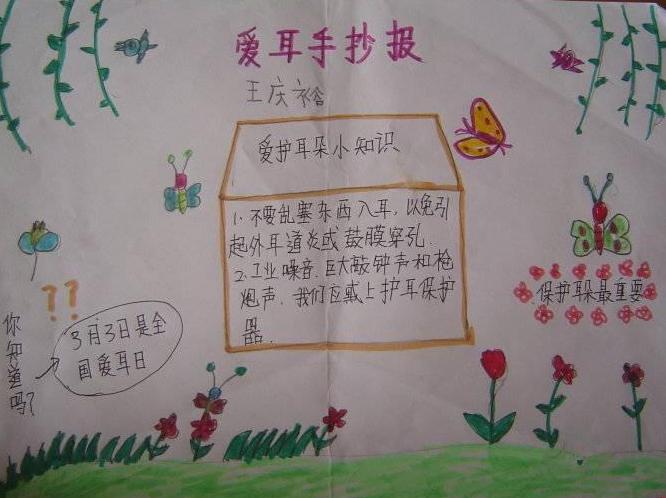 爱耳手抄报
王庆裕
爱护耳朵小知识
1.不要乱塞东西入耳,以免引
起外耳道炎或鼓膜穿孔.
2.工业噪音.巨大敲钟声和枪
炮声.我们应戴上护耳保护
器.
保护耳朵最重要
??
3月3日是全
国爱耳日
你知道吗?